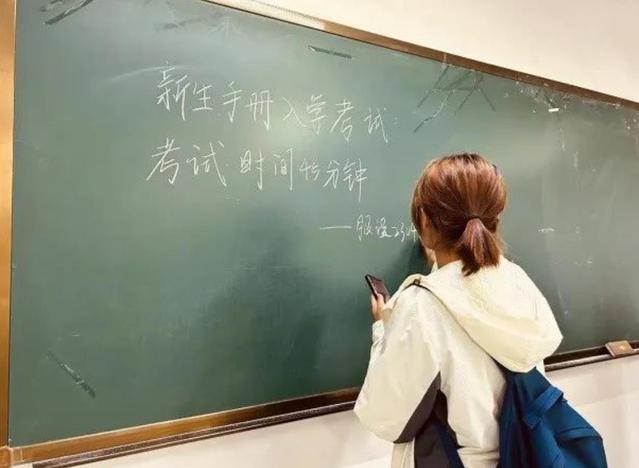 新生手册入学考试:
考试时间45分钟
——服设